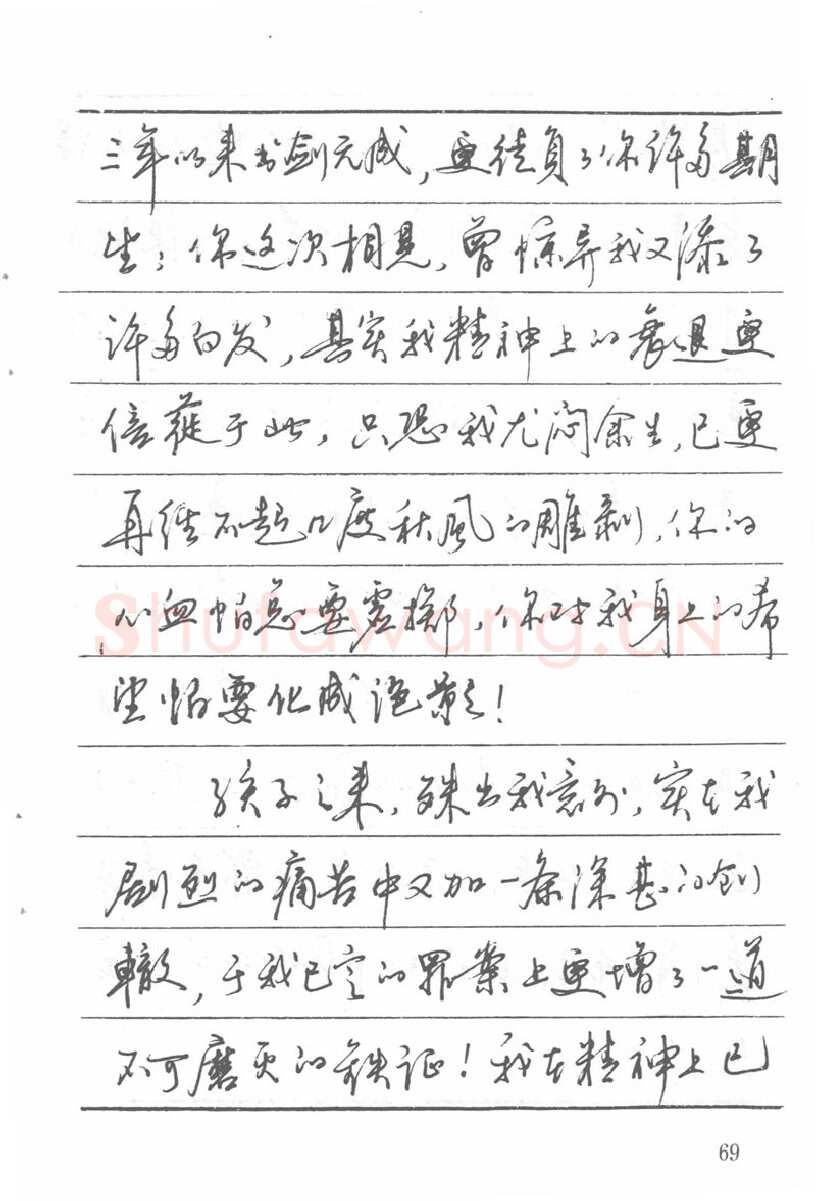 三年以来书剑无成，更徒负了你许多期
望；你这次相见，曾惊异我又添了
许多白发，其实我精神上的衰退更
倍蓰于此，只恐我尤闷余生，已更
再经不起几度秋風的雕剥，你的
心血怕总要虚掷，你对我身上的希
望怕要化成泡影！
孩子之来，殊出我意外，实在我
剧烈的痛苦中又加一条深甚的创
轍，于我已定的罪案上更增了一道
不可磨灭的铁证！我在精神上已
Shufawang.CN
69